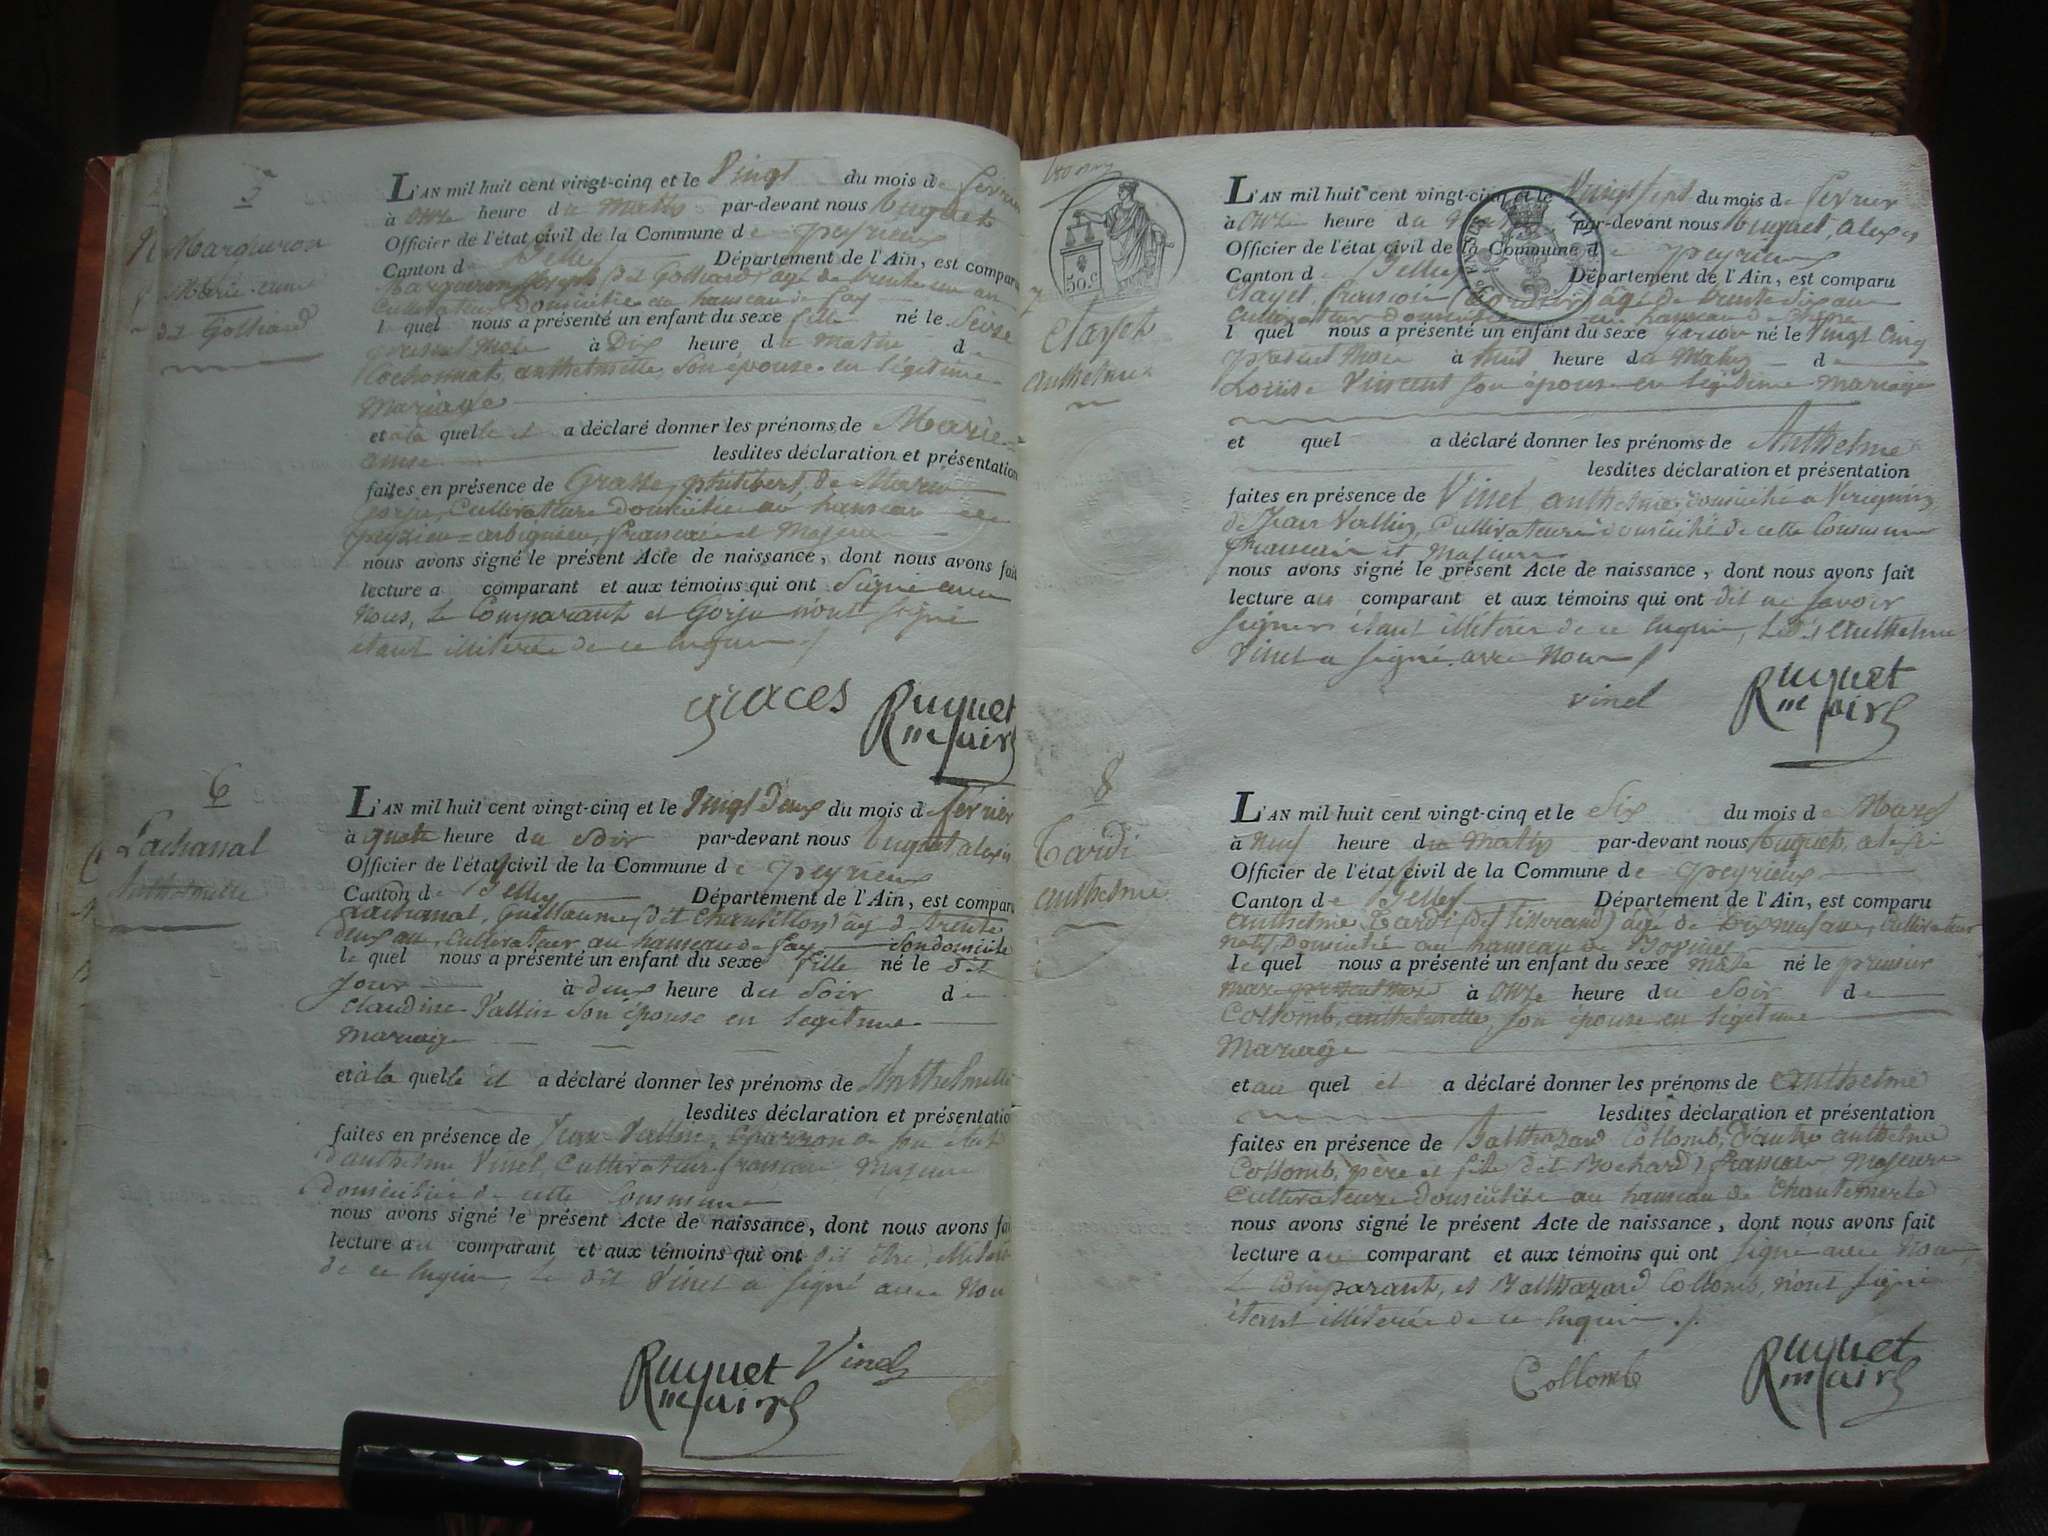 5
Marguron
Marie anne
dit Golliard
L'AN mil huit cent vingt-cinq et le Vingt du mois de fevrier
à onze heure du matin par-devant nous Ruquet
Officier de l'état civil de la Commune de Peyrieux
Canton de Belley Département de l'Ain, est comparu
Marguron Joseph (dit Golliard) agé de trente un an
Cultivateur Domicilié au hameau de fay
l quel nous a présenté un enfant du sexe fille né le Seize
présent mois à Dix heure du matin d
Rochonnat, anthelmette, son épouse en légitime
Mariage
et à la quelle il a déclaré donner les prénoms de Marie
anne lesdites déclaration et présentation
faites en présence de philibert, de
Gorju, Cultivateurs domiciliés au hameau de
Peyzieu - arbignieu, francais et Majeurs
nous avons signé le présent Acte de naissance, dont nous avons fait
lecture a comparant et aux témoins qui ont Signé avec
Nous, le Comparant et Gorju n'ont signé
étant illiterés de ce requis
graces Ruquet
maire
6
Lachanal
Anthelmette
L'AN mil huit cent vingt-cinq et le Vingt deux du mois de fevrier
à quatre heure du Soir par-devant nous Ruquet alexis
Officier de l'état civil de la Commune de Peyrieux
Canton de Belley Département de l'Ain, est comparu
Lachanal, Guillaume (dit Chantillon) âgé de trente
deux an, cultivateur au hameau de fay son domicile
le quel nous a présenté un enfant du sexe fille né le dit
jour à deux heure du Soir de
Claudine Vallin son épouse en legitime
mariage
et à la quelle il a déclaré donner les prénoms de Anthelmette
lesdites déclaration et présentation
faites en présence de Jean Vallin, Charron de son état
d'anthelme Vinel, Cultivateur francais Majeurs
domiciliés de cette Commune
nous avons signé le présent Acte de naissance, dont nous avons fait
lecture au comparant et aux témoins qui ont dit être illiteré
de ce requis, le dit Vinel a signé avec Nou
Ruquet Vinel
maire
50. C
7
Clayet
anthelme
L'AN mil huit cent vingt-cinq et le Vingt sept du mois de fevrier
à onze heure du par-devant nous Ruquet, alexis
Officier de l'état civil de la Commune de Peyrieux
Canton de Belley Département de l'Ain, est comparu
Clayet, francois âgé de trente six an
cultivateur domicilié au hameau de
l quel nous a présenté un enfant du sexe Garcon né le Vingt Cinq
présent Mois à huit heure du Matin de
Louise Vincent son épouse en légitime mariage
et quel a déclaré donner les prénoms de Anthelme
lesdites déclaration et présentation
faites en présence de Vinel anthelme, domicilié a
de Jean Vallin, Cultivateurs domicilié de cette Commune
francais et Majeurs
nous avons signé le présent Acte de naissance, dont nous avons fait
lecture au comparant et aux témoins qui ont dit ne savoir
signer étant illiterés de ce requis, le dit Anthelme
Vinel a signé avec Nous
vinel Ruquet
maire
8
Tardi
anthelme
L'AN mil huit cent vingt-cinq et le Six du mois de Mars
à Neuf heure du Matin par-devant nous Ruquet, alexis
Officier de l'état civil de la Commune de Peyrieux
Canton de Belley Département de l'Ain, est comparu
anthelme Tardi (dit tisserand) âgé de Dix neuf ans, cultivateur
natif, Domicilié au hameau de
le quel nous a présenté un enfant du sexe mâle né le premier
mars présent mois à onze heure du Soir de
Collomb, anthelmette, son épouse en légitime
Mariage
et au quel il a déclaré donner les prénoms de anthelme
lesdites déclaration et présentation
faites en présence de Balthazard Collomb, d'autre anthelme
Collomb, père et fils dit Bochard, francais Majeurs
Cultivateurs domiciliés au hameau de Chantemerle
nous avons signé le présent Acte de naissance, dont nous avons fait
lecture au comparant et aux témoins qui ont signé avec Nous
le Comparant, et Balthazard Collomb, n'ont signé
étant illiterés de ce requis
Collomb Ruquet
maire